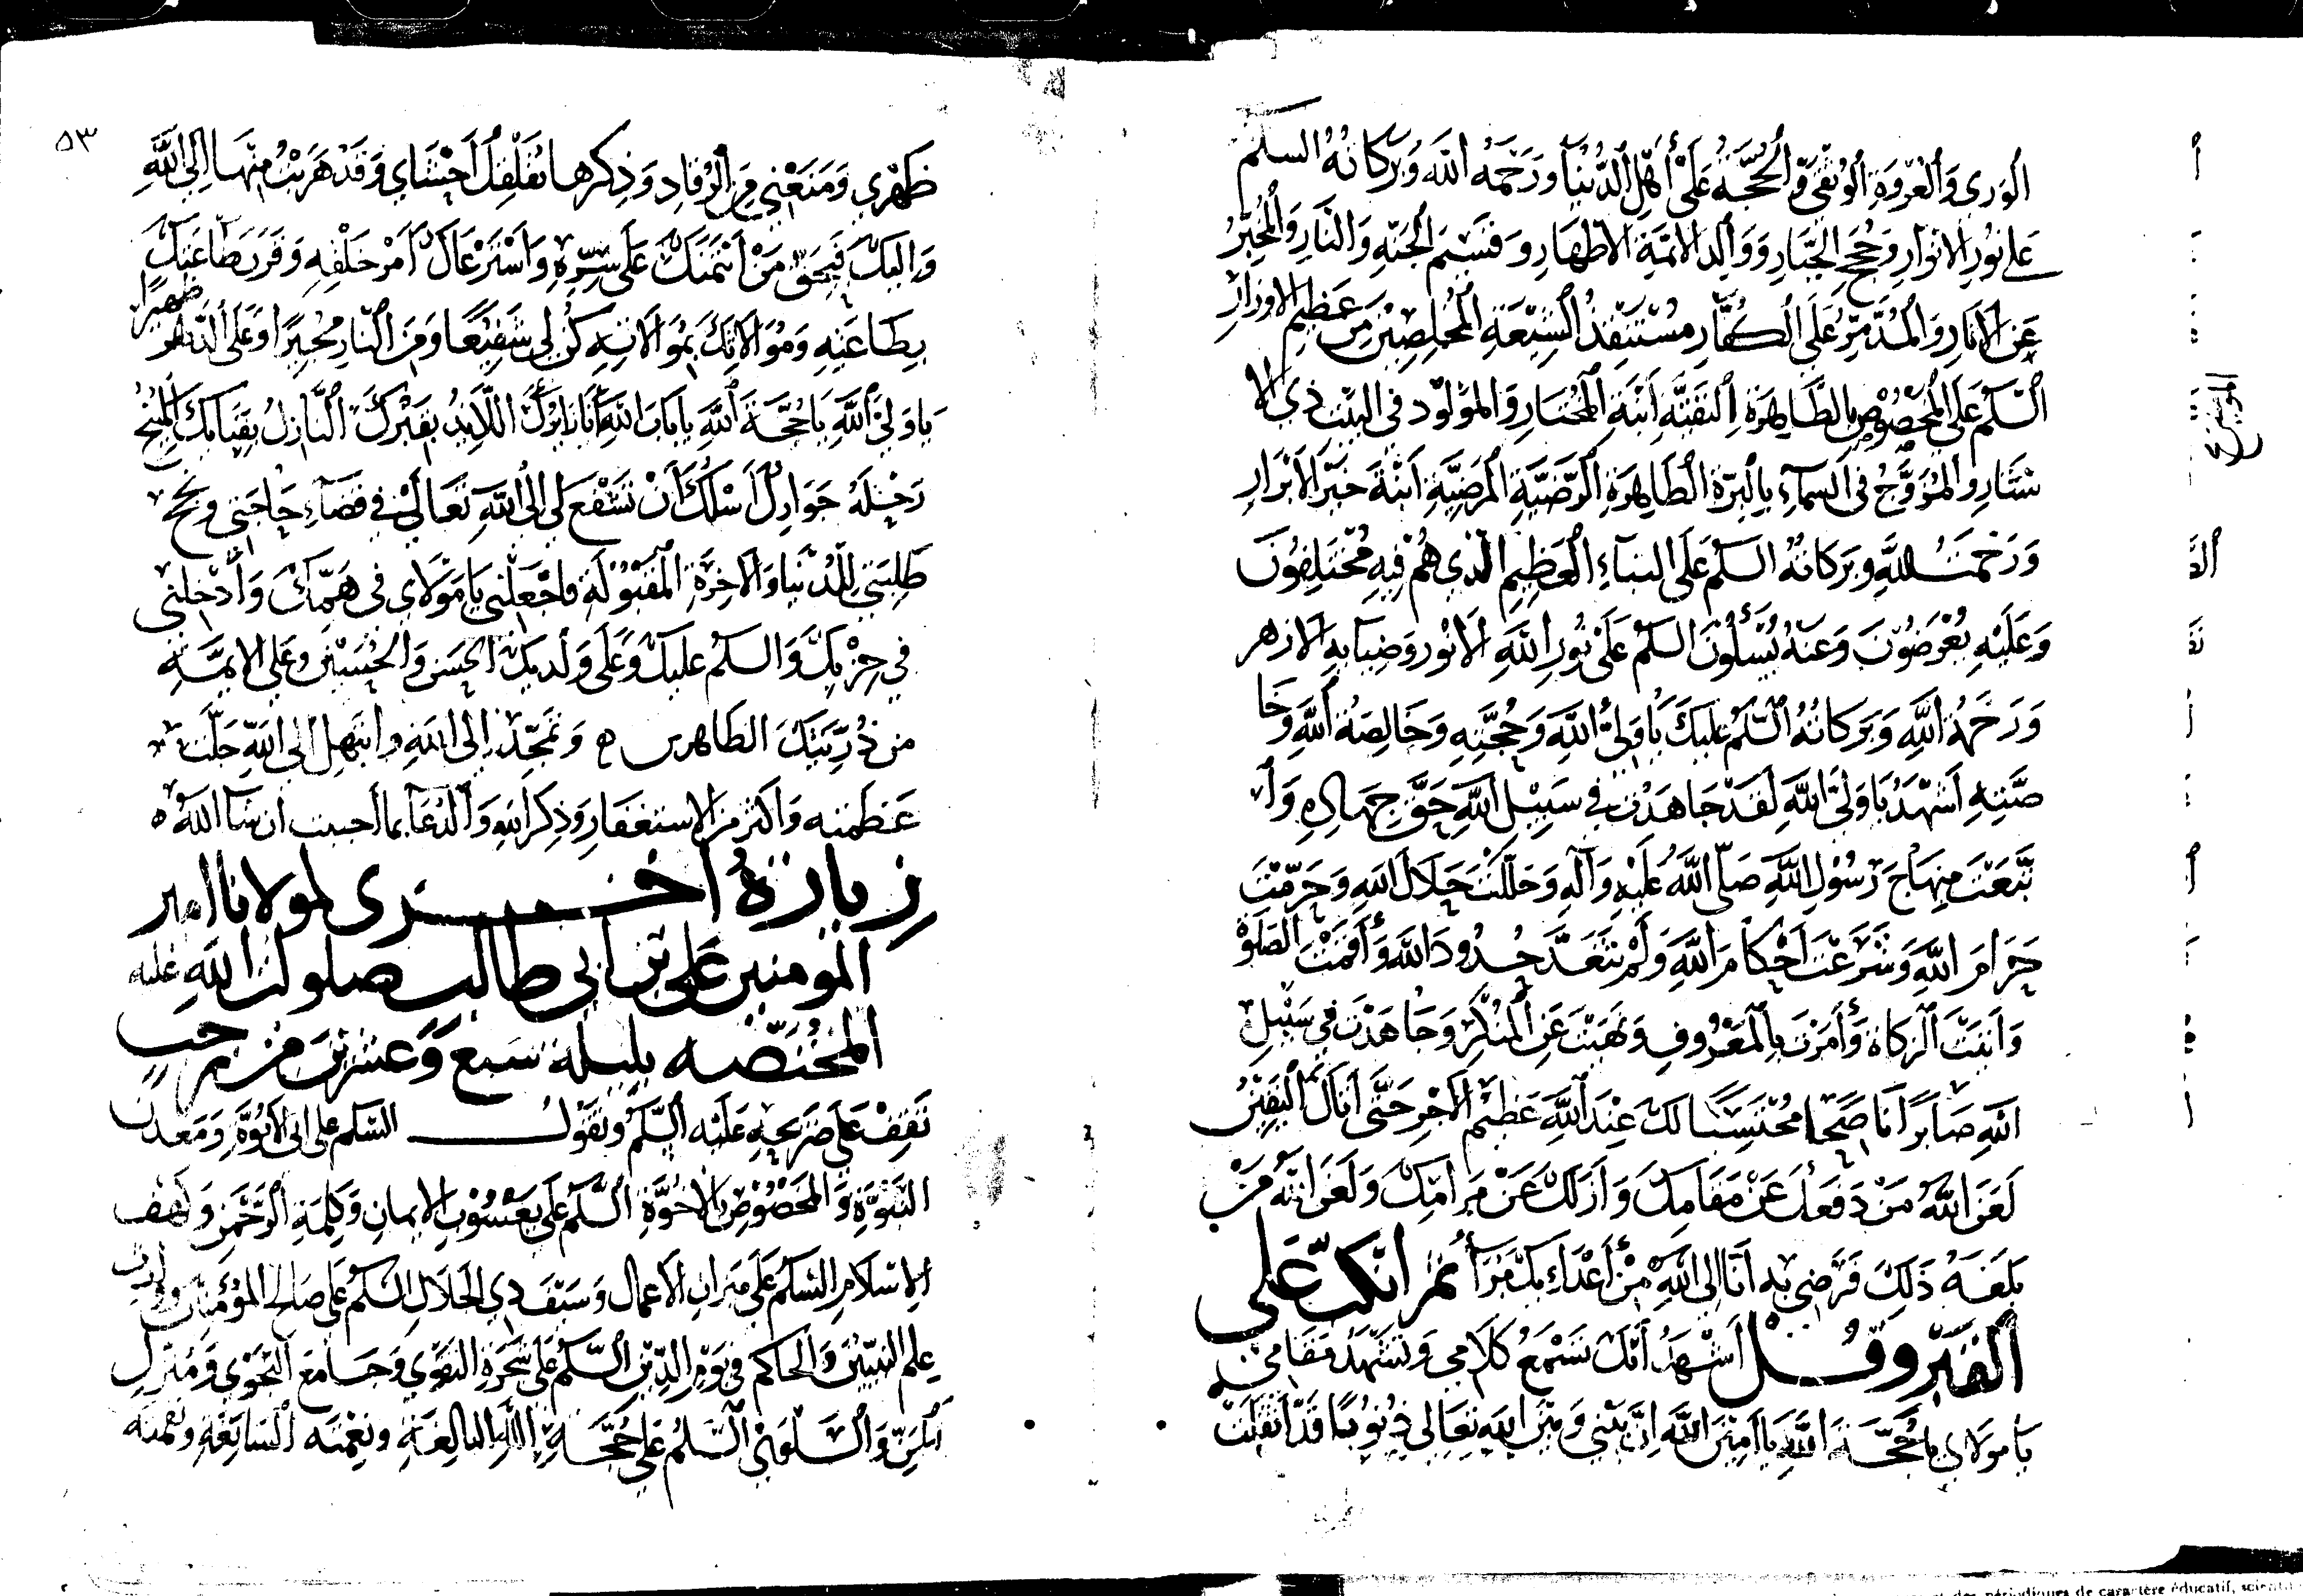 الورى والعروة الوثقى والحجة على أهل الدنيا ورحمة الله وبركاته السلم
على نور الانوار وحجج الجبار ووالد الائمة الاطهار وقسيم الجنة والنار والمخبر
عن الاثار والمدمر على الكفار مستنقذ الشيعة المخلصين من عظيم الاوزار
السلم على المخصوص بالطاهرة التقية ابنة المختار والمولود في البيت ذي الا
ستار والمزوج في السماء بالبرة الطاهرة الرضية المرضية ابنة خير الابرار
ورحمت الله وبركاته السلم على النباء العظيم الذي هم فيه مختلفون
وعليه يعرضون وعنه يسئلون السلم على نور الله الانور وضيآيه الازهر
ورحمة الله وبركاته السلم عليك يا ولي الله وحجته وخالصة الله وخا
صته اشهد يا ولي الله لقد جاهدت في سبيل الله حق جهاده وا
تبعت منهاج رسول الله صلى الله عليه وآله وحللت حلال الله وحرمت
حرام الله وشرعت احكام الله ولم تتعد حدود الله وأقمت الصلوة
واتيت الزكاة وأمرت بالمعروف ونهيت عن المنكر وجاهدت في سبيل
الله صابرا ناصحا محتسبا لك عند الله عظيم الاجر حتى اتاك اليقين
لعن الله من دفعك عن مقامك وازلك عن مراتبك ولعن الله من
بلغه ذلك فرضي به انا الى الله من أعدايك برآ ثم انكب على
القبر وقل أشهد أنك تسمع كلامي وتشهد مقامي
يا مولاي يا حجة الله يا امين الله ان بيني وبين الله تعالى ذنوبا قد اثقلت
٥٣
ظهري ومنعني من الرقاد وذكرها يقلقل احشاي وقد هربت منها الى الله
واليك فبحق من ائتمنك على سره واسترعاك امر خلقه وقرن طاعتك
بطاعته وموالاتك بموالاته كن لي شفيعا ومن النار مجيرا وعلى الدهر ظهيرا
يا ولي الله يا حجة الله يا باب الله أنا زايرك اللايذ بقبرك النازل بفنايك المنيخ
رحله جوارك اسلك أن تشفع لي الى الله تعالى في قضاء حاجتي ونجح
طلبتي للدنيا والاخرة المقبولة فاجعلني يا مولاي في همك وأدخلني
في حزبك والسلم عليك وعلى ولديك الحسن والحسين وعلى الايمة
من ذريتك الطاهرين ه وتمجد إلى الله وابتهل الى الله جلت
عظمته واكثر من الاستغفار وذكر الله والدعا بما أحببت ان شا الله ه
زيارة أخرى لمولانا امير
المومنين علي بن ابي طالب صلوات الله عليه
المختصه بليلة سبع وعشرين من رجب
تقف على ضريحه عليه السلم وتقول السلم على ابي الابوة ومعدن
النبوة والمخصوص بالاخوة السلم على يعسوب الايمان وكلمة الرحمن وكهف
الاسلام السلم على ميزان الاعمال وسيف ذي الجلال السلم على صالح المؤمنين ووارث
علم النبيين والحاكم في يوم الدين السلم على شجرة التقوى وسامع النجوى ومنزل
المن والسلوى السلم على حجة الله البالغة ونعمته السابغة ونقمته